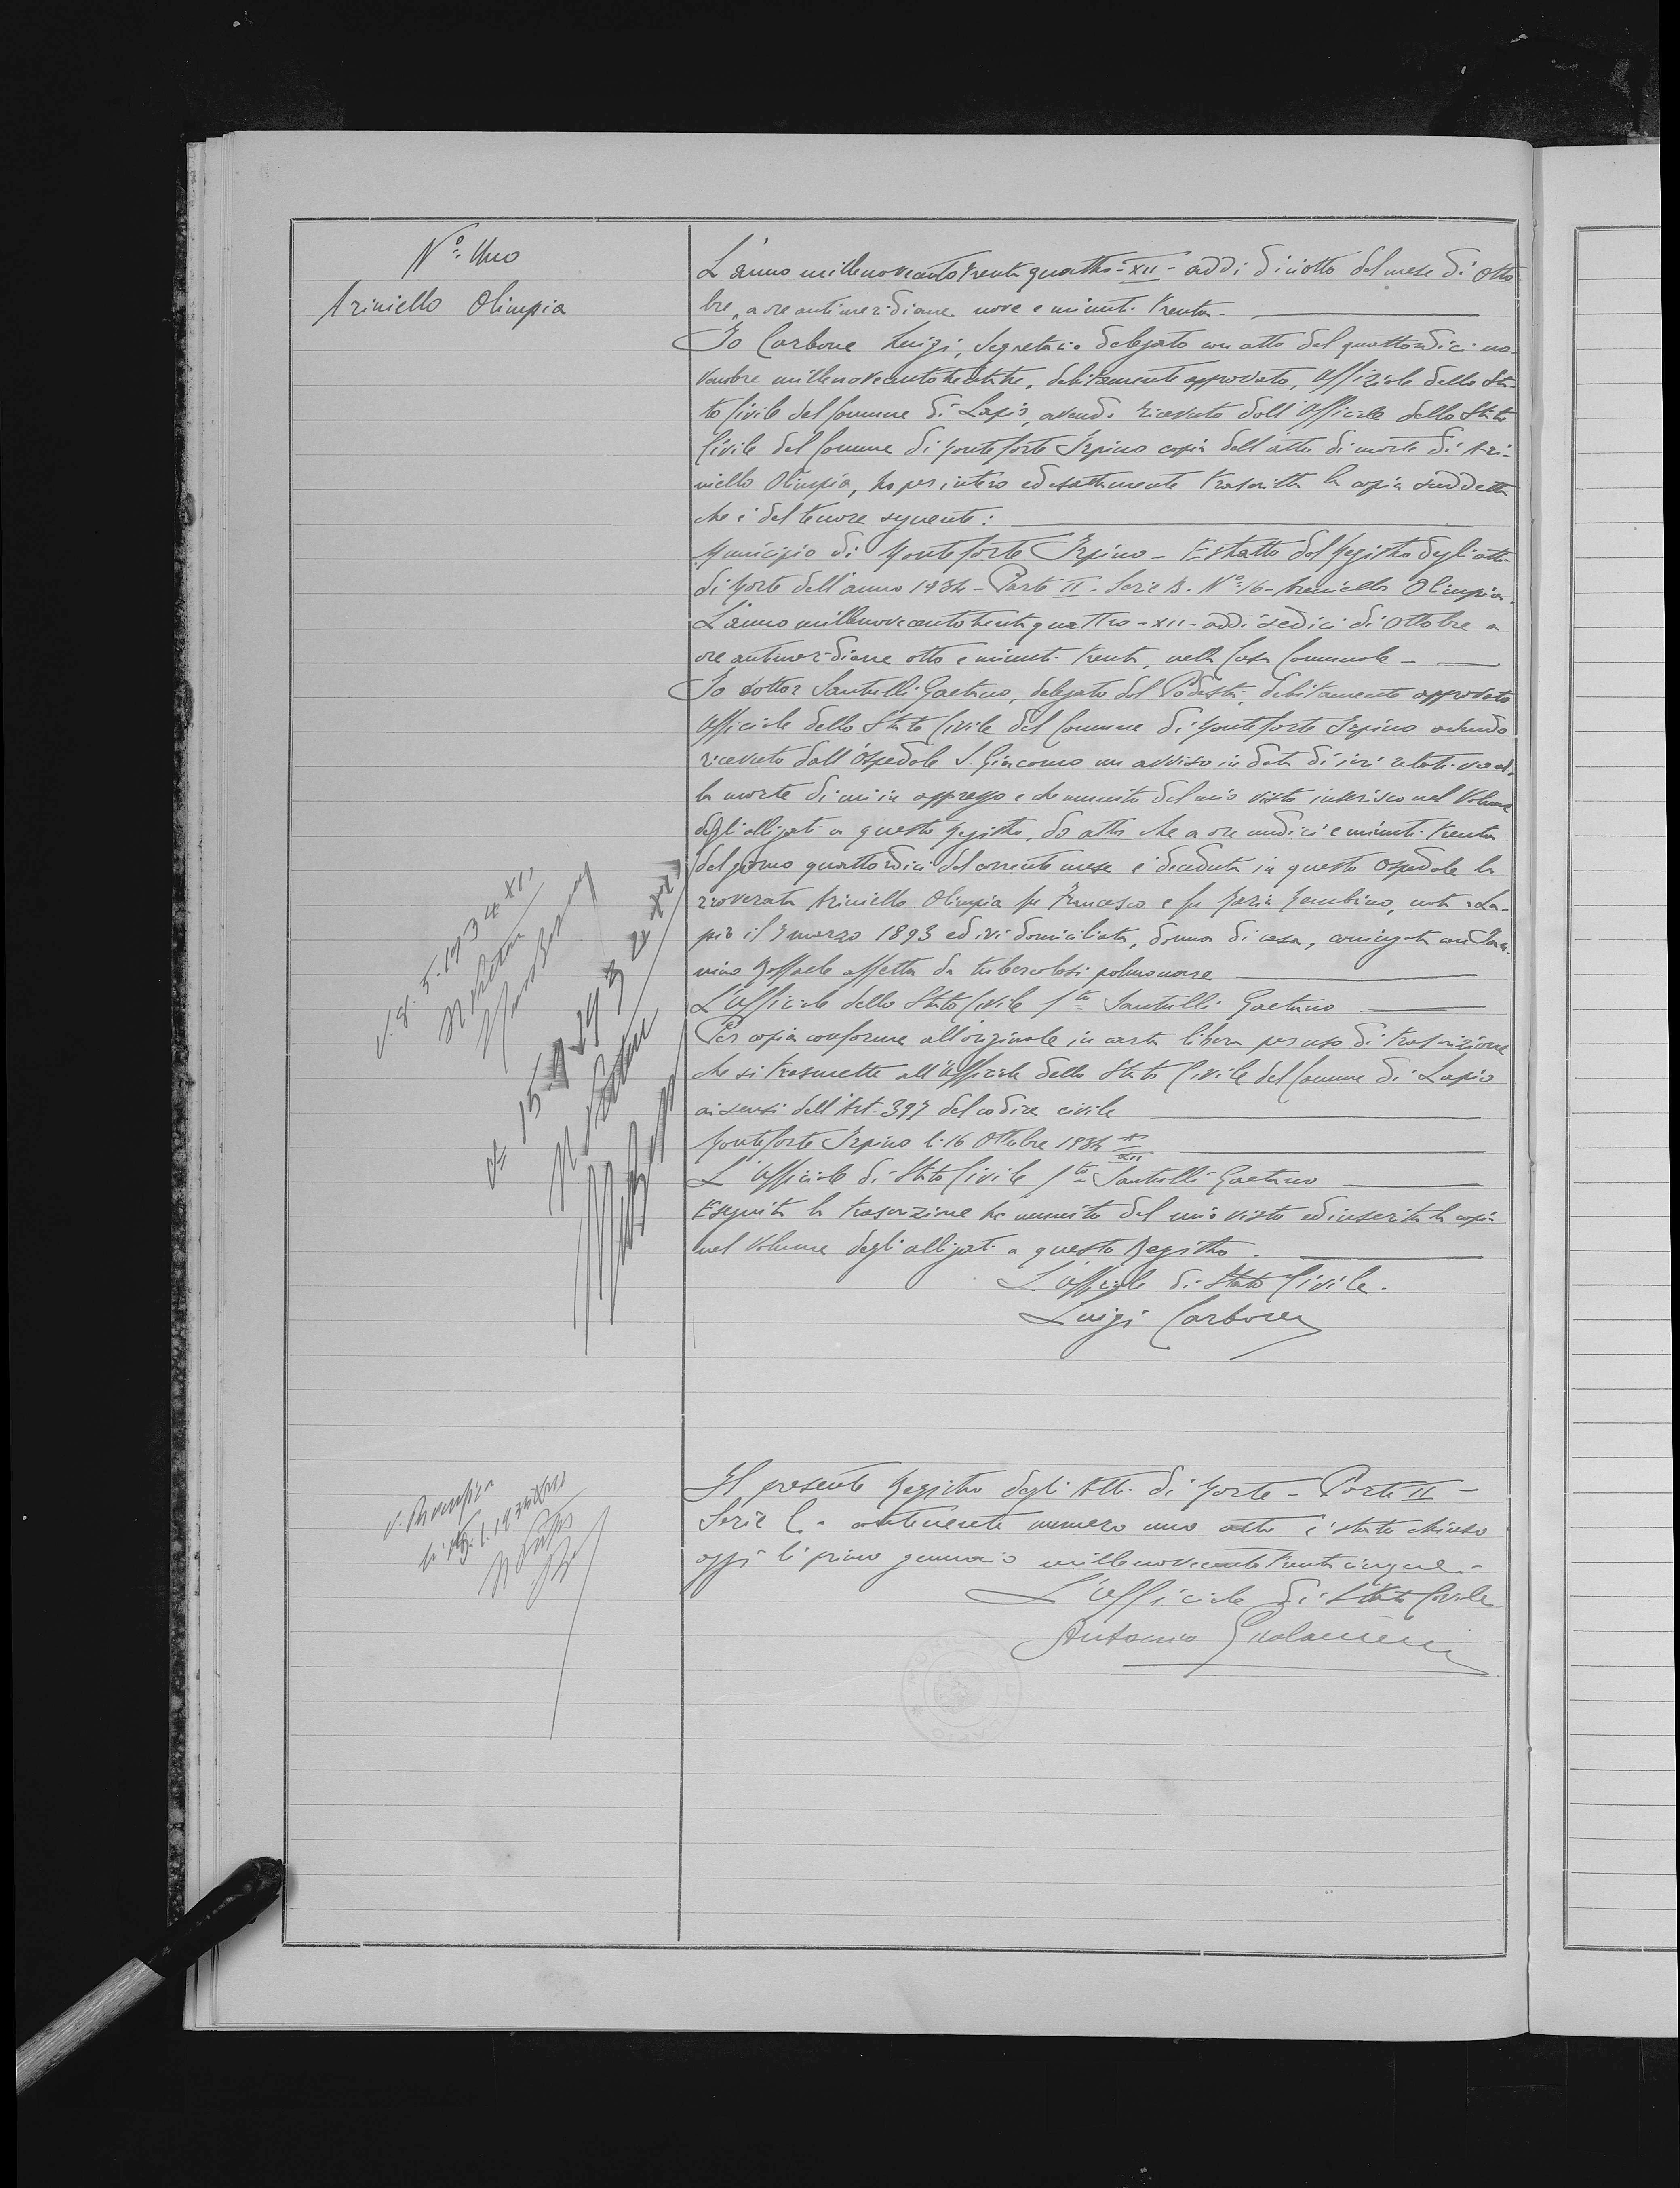 Nº. Uno
Ariniello Olimpia
L'anno millenovecentotrentaquattro - XII - addi diciotto del mese di Otto
bre, a ore antimeridiane nove e minuti trenta.
Io Carbone Luigi, Segretario delegato con atto del quattordici no-
vembre millenovecentotrentatre, debitamente approvato, Uffiziale dello Sta-
to Civile del Comune di Lapio, avendo ricevuto dall'Officiale dello Stato
Civile del Comune di Monteforte Irpino copia dell'atto di morte di Ari-
niello Olimpia, ho per intero ed esattamente trascritta la copia suddetta
che è del tenore seguente:
Municipio di Monteforte Irpino - Estratto dal Registro degli atti
di Morte dell'anno 1934 - Parte II - Serie B. Nº 16 - Ariniello Olimpia.
L'anno millenovecentotrentaquattro - XII - addi sedici di Ottobre a
ore antimeridiane otto e minuti trenta, nella Casa Comunale -
Io dottor Santulli Gaetano, delegato dal Podestà, debitamente approvato
Ufficiale dello Stato Civile del Comune di Monteforte Irpino avendo
ricevuto dall'Ospedale S. Giacomo un avviso in data di ieri relativo al-
la morte di cui in appresso e che munito del mio visto inserisco nel Volume
degli alligati a questo Registro, do atto che a ore undici e minuti trenta
del giorno quattordici del corrente mese è deceduta in questo Ospedale la
ricoverata Ariniello Olimpia fu Francesco e fu Maria Gambino, nata a La-
pio il 7 marzo 1893 ed ivi domiciliata, donna di casa, coniugata con
nino Raffaele affetta da tubercolosi polmonare
L'Ufficiale dello Stato Civile fto Santulli Gaetano
Per copia conforme all'originale in carta libera per uso di trascrizione
che si trasmette all'Ufficiale dello Stato Civile del Comune di Lapio
ai sensi dell'Art. 397 del codice civile
Monteforte Irpino li 16 Ottobre 1934 XII
L'Ufficiale di Stato Civile fto Santulli Gaetano
Eseguita la trascrizione ho munito del mio visto ed inserita la copia
nel Volume degli alligati a questo Registro.
L'Ufficiale di Stato Civile.
Luigi Carbone
V. 8. 5. 1934 XI,
Il presente Registro degli Atti di Morte - Parte II -
Serie C - contenente numero uno atto è stato chiuso
oggi li primo gennaio millenovecentotrentacinque -
L'Ufficiale di Stato Civile
Antonio